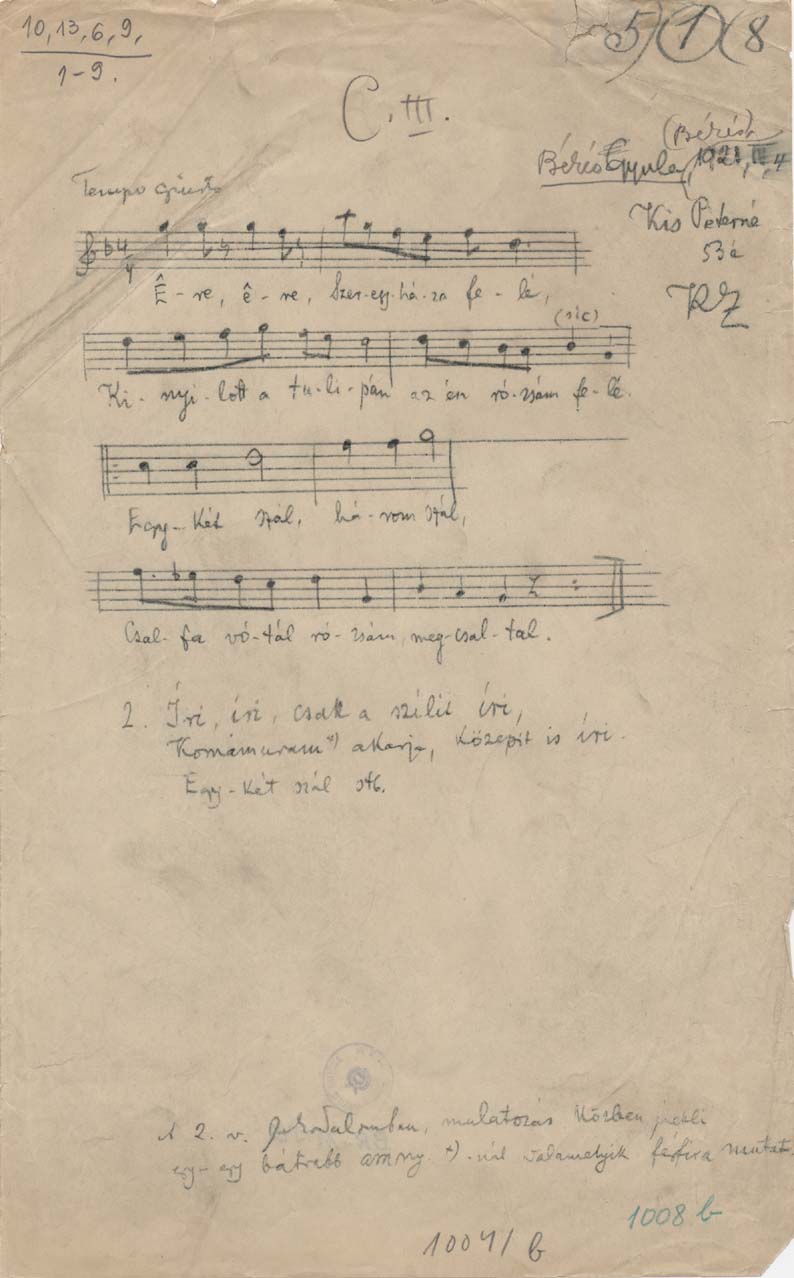 10, 13, 6, 9,
1-9.
5) (1) (8
C. III.
(Bérés)
Gyula, 1921, IV, 4
Tempo giusto
Kis Péterné
53 é
KZ
4
4
Ê-re, ê-re, Szer-egy-há-za fe-lé,
(sic)
Ki-nyi-lott a tu-li-pán az én ró-zsám fe-lé.
Egy-két szál, há-rom szál,
Csal-fa vó-tál ró-zsám, meg-csal-tal.
2. Íri, íri, csak a szélit íri,
Komámuram x) akarja, közepit is íri.
Egy-két szál stb.
A 2. v. lakodalomban, mulatozás közben
egy-egy bátrabb x)-nál valamelyik férfira mutat.
1008 b
1007/b